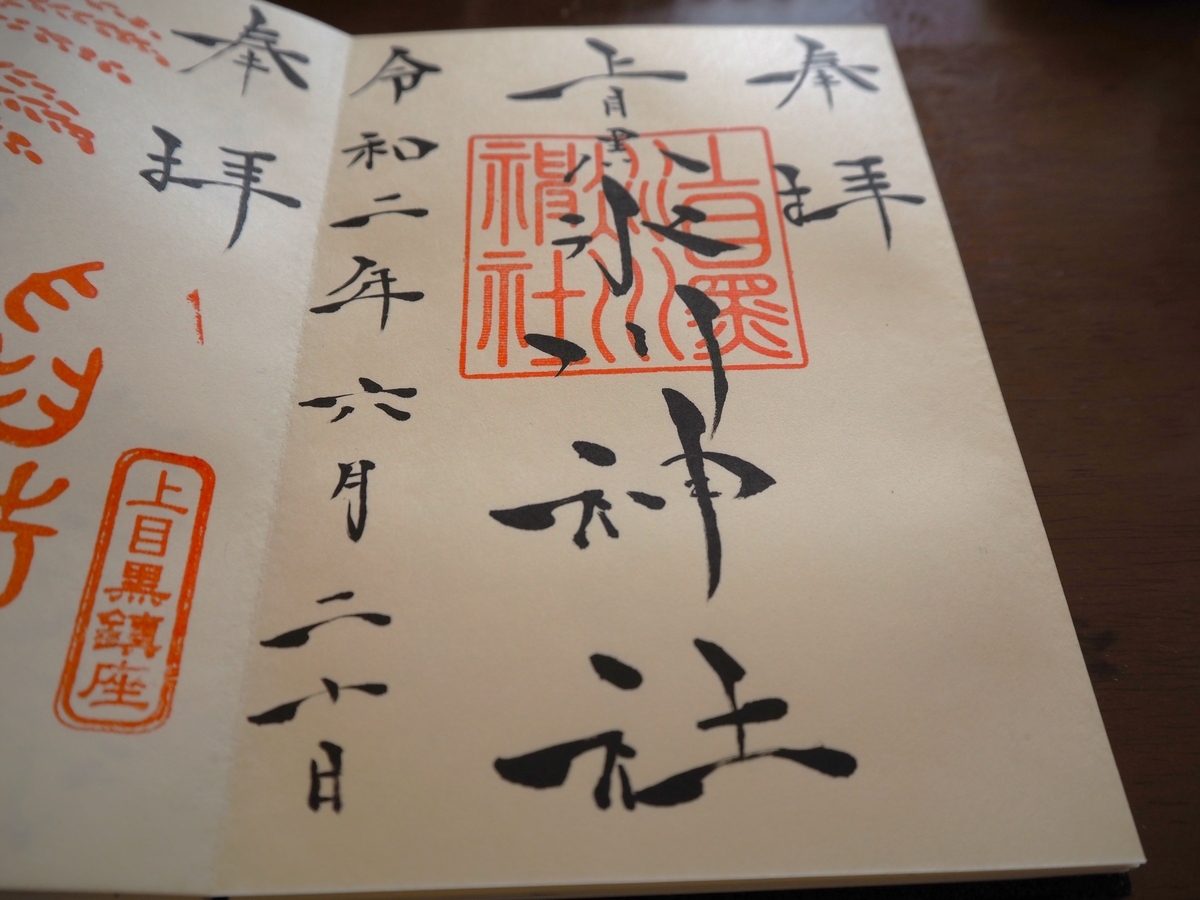 奉拝
上目黒氷川神社
上目黒氷川神社
令和二年六月二十日
奉拝
上目黒鎮座